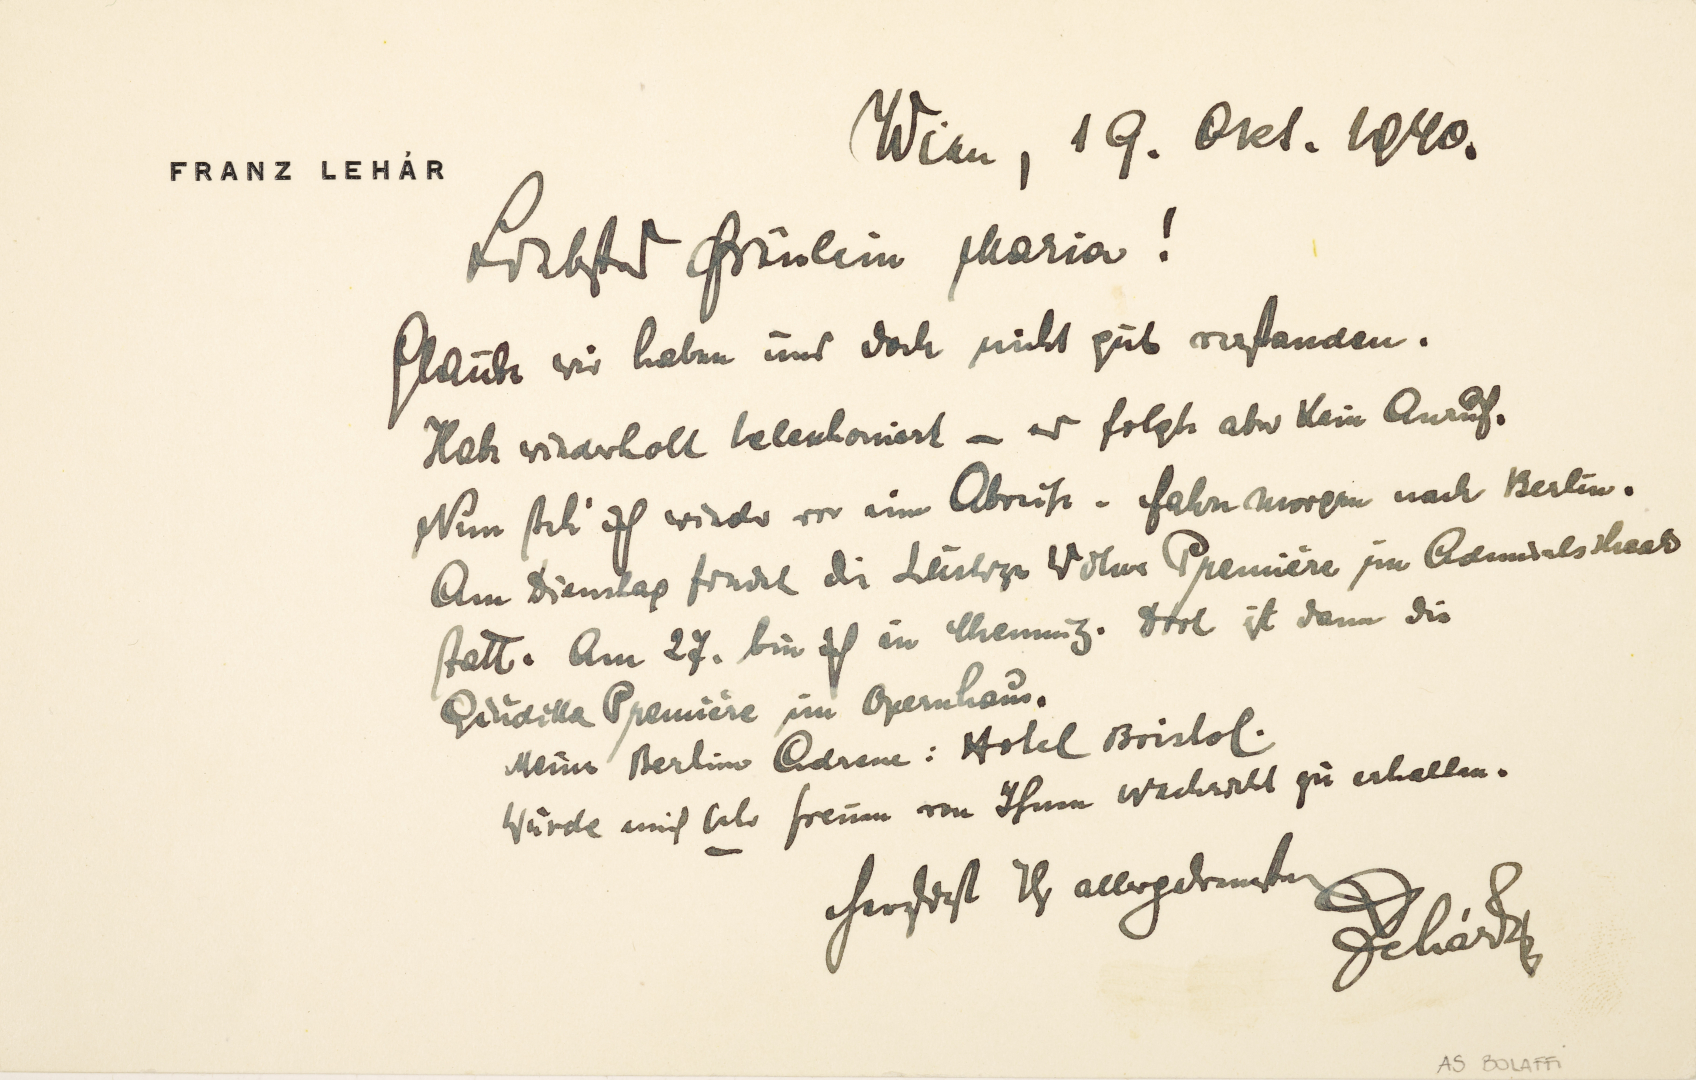 FRANZ LEHÁR
Wien, 19. Okt. 1940.
Liebstes Fräulein Maria!
Glaube wir haben uns doch nicht gut verstanden.
Habe wiederholt telephoniert – es folgte aber kein Anruf.
Nun steh' ich wieder vor einer Abreise. Fahre morgen nach Berlin.
Am Dienstag findet die Lustige Witwe Première im Admirals
statt. Am 27. bin ich in Chemnitz. Dort ist dann die
Giuditta Première im Opernhaus.
Meine Berliner Adresse: Hotel Bristol.
Würde mich sehr freuen von Ihnen Nachricht zu erhalten.
Herzlichst Ihr allergetreuester
Lehár
AS BOLAFFI